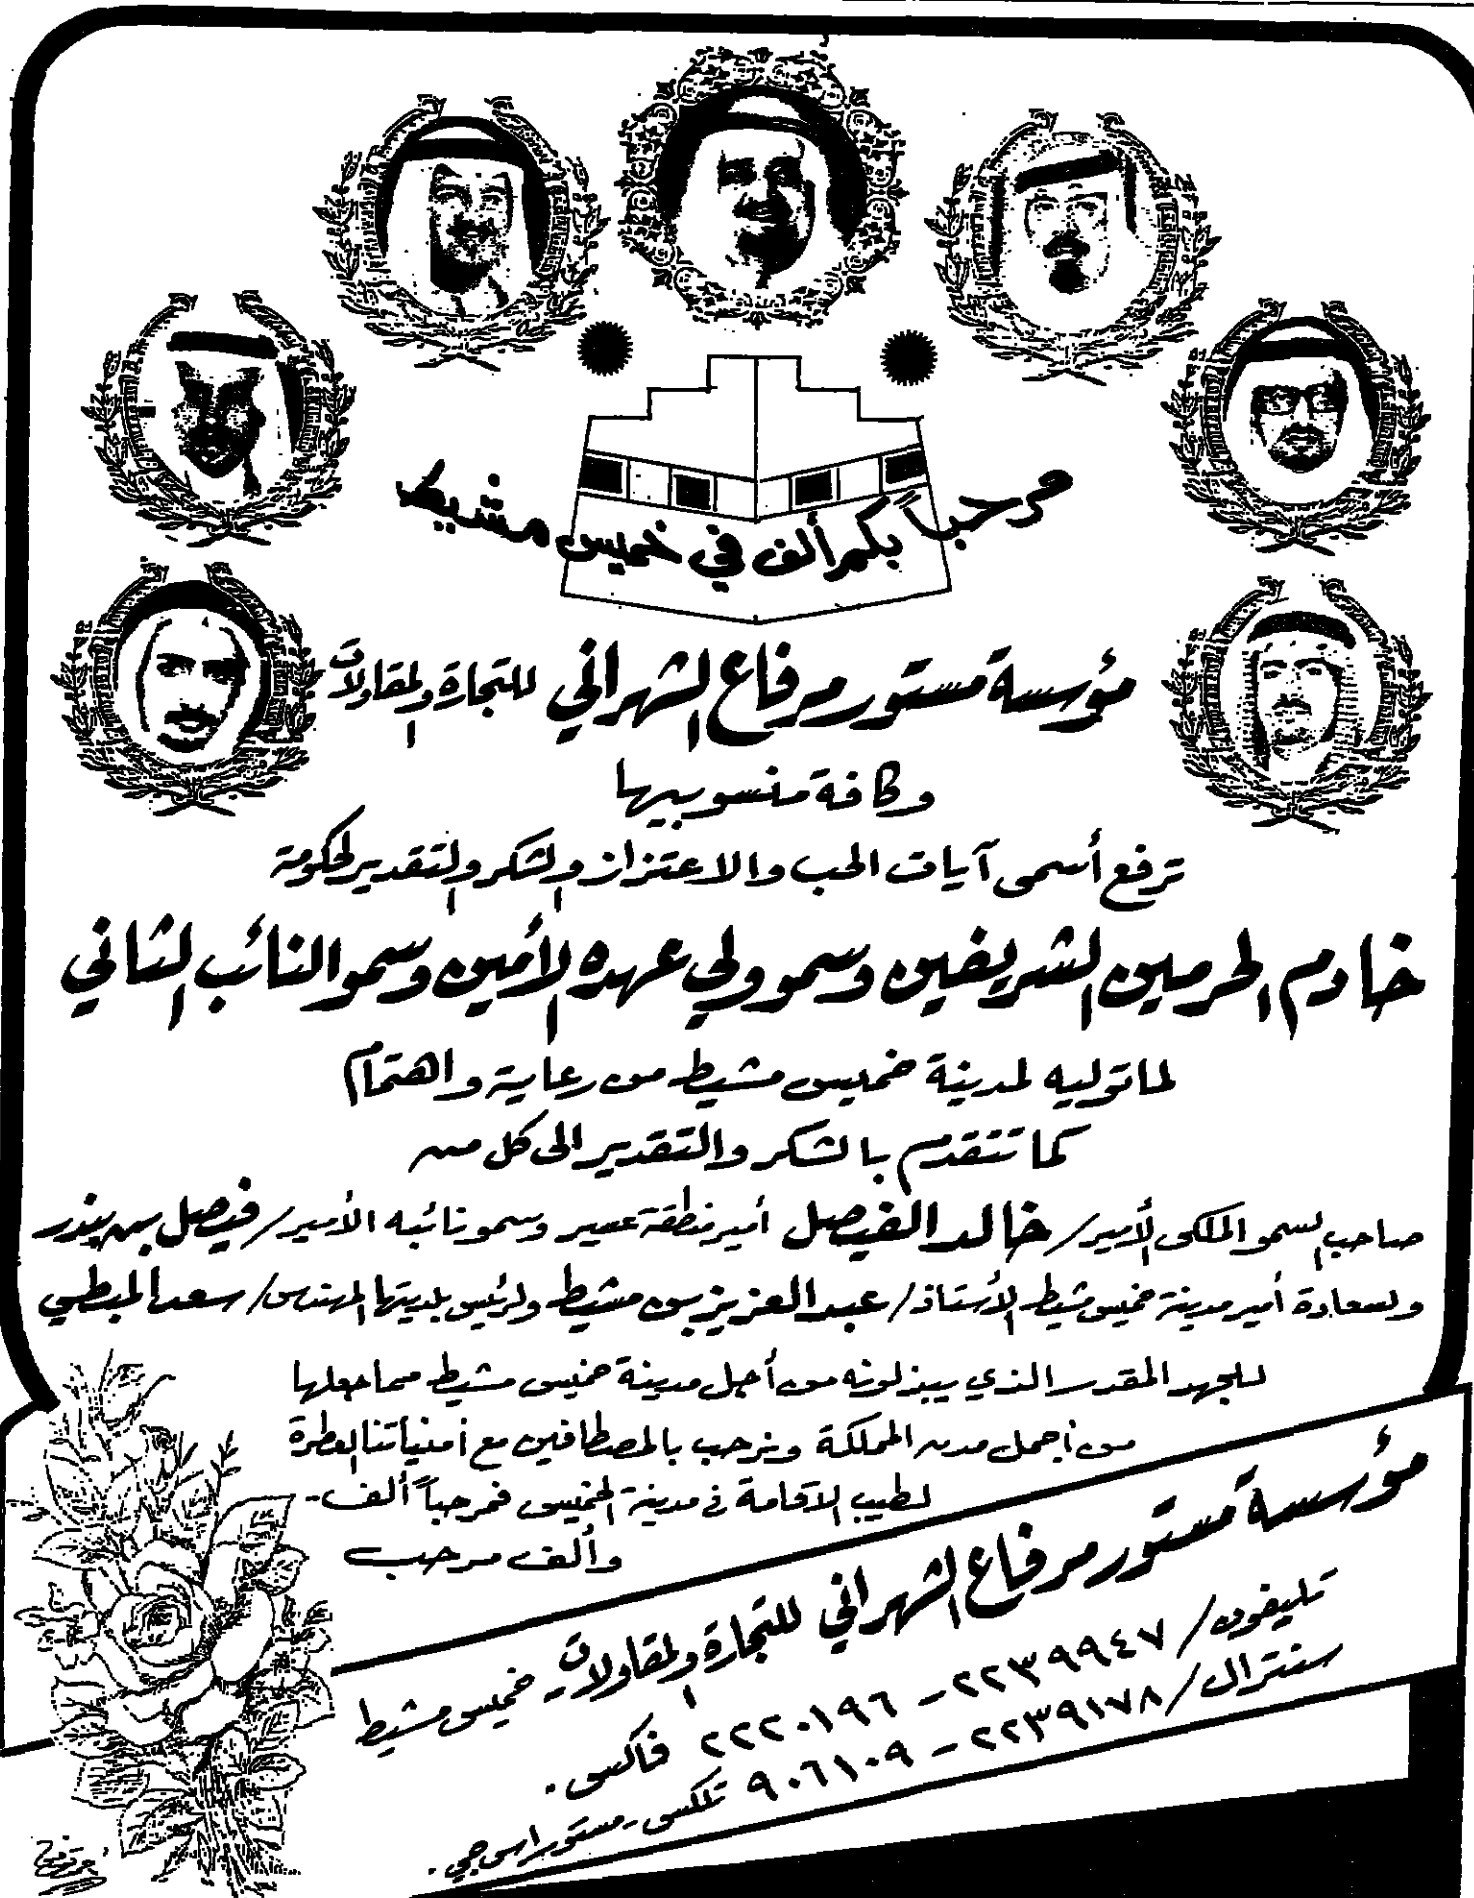 مرحباً بكم ألف في خميس مشيط
مؤسسة مستور مرفاع الشهراني للتجارة والمقاولات
وكافة منسوبيها
ترفع أسمى آيات الحب والاعتزاز والشكر والتقدير لحكومة
خادم الحرمين الشريفين وسمو ولي عهده الأمين وسمو النائب الثاني
لما توليه لمدينة خميس مشيط من رعاية واهتمام
كما تتقدم بالشكر والتقدير الى كل من
صاحب السمو الملكي الأمير/ خالد الفيصل أمير منطقة عسير وسمو نائبه الأمير/ فيصل بن بندر
ولسعادة أمير مدينة خميس مشيط الأستاذ/ عبد العزيز بن مشيط ولرئيس بلديتها المهندس/ سعد المبطي
للجهد المقدر الذي يبذلونه من أجل مدينة خميس مشيط مما جعلها
من أجمل مدن المملكة ونرحب بالمصطافين مع أمنياتنا العطرة
لطيب الاقامة في مدينة الخميس فمرحباً ألف-
وألف مرحب
مؤسسة مستور مرفاع الشهراني للتجارة والمقاولات خميس مشيط
تليفون/ ٢٢٣٩٩٤٧ - ٢٢٢٠١٩٦ فاكس.
سنترال/ ٢٢٣٩١٧٨ - ٩٠٦١٠٩ تلكس - مستور اس جي.